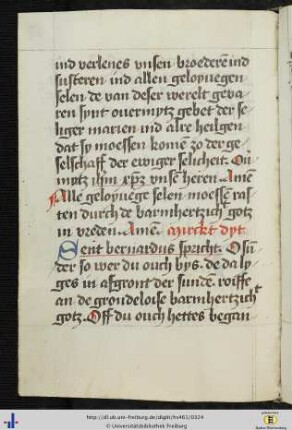 ind verlenes vnsen broederē ind
susteren ind allen geloyuegen
selen de van deser werelt geva
ren synt ouermytz gebet der se
liger marien ind alre heilgen
dat sy moessen komē zo der ge
selschaff der ewiger selicheit. Ou
mytz ihm xp̄z vnsē heren Amē
Alle geloyuege selen moessē ras
ten durch de barmhertzich᷑ gotz
in vreden. Amē. Myrckt dyt.
Sent bernardus spricht. O sū
der so wer du ouch bys. de da ly
ges in afgront der sundē. roiffe
an de grondeloise barmhertzich᷑t
gotz. Off du ouch hettes began
http://dl.ub.uni-freiburg.de/diglit/hs461/0324
© Universitätsbibliothek Freiburg